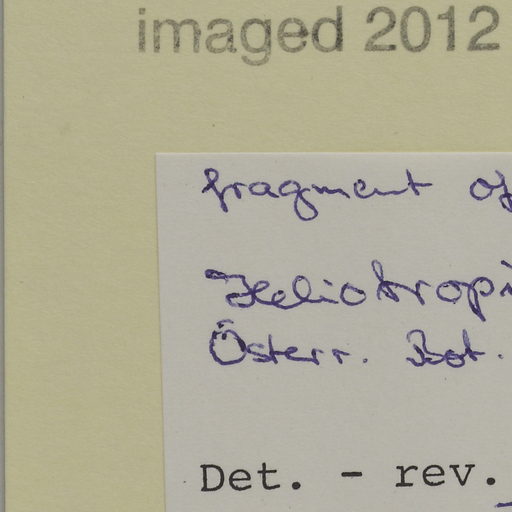 imaged 2012
fragment of
Heliotropi
Österr. Bot.
Det. - rev.